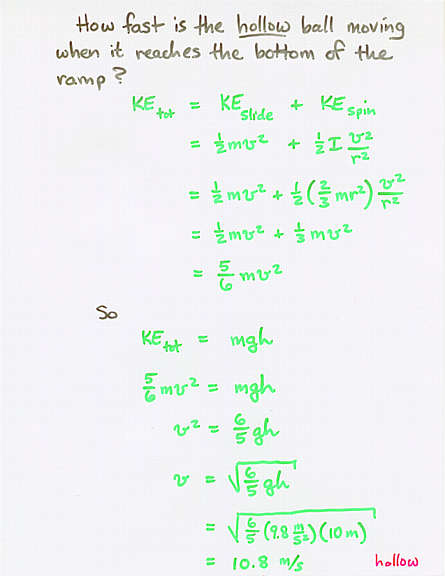 How fast is the hollow ball moving
when it reaches the bottom of the
ramp?
KE_tot = KE_slide + KE_spin
= ½mv² + ½I v²/r²
= ½mv² + ½(⅔mr²) v²/r²
= ½mv² + ⅓mv²
= ⅚mv²
So
KE_tot = mgh
⅚mv² = mgh
v² = 6/5 gh
v = √(6/5 gh)
= √(6/5 (9.8 m/s²)(10m))
= 10.8 m/s
hollow